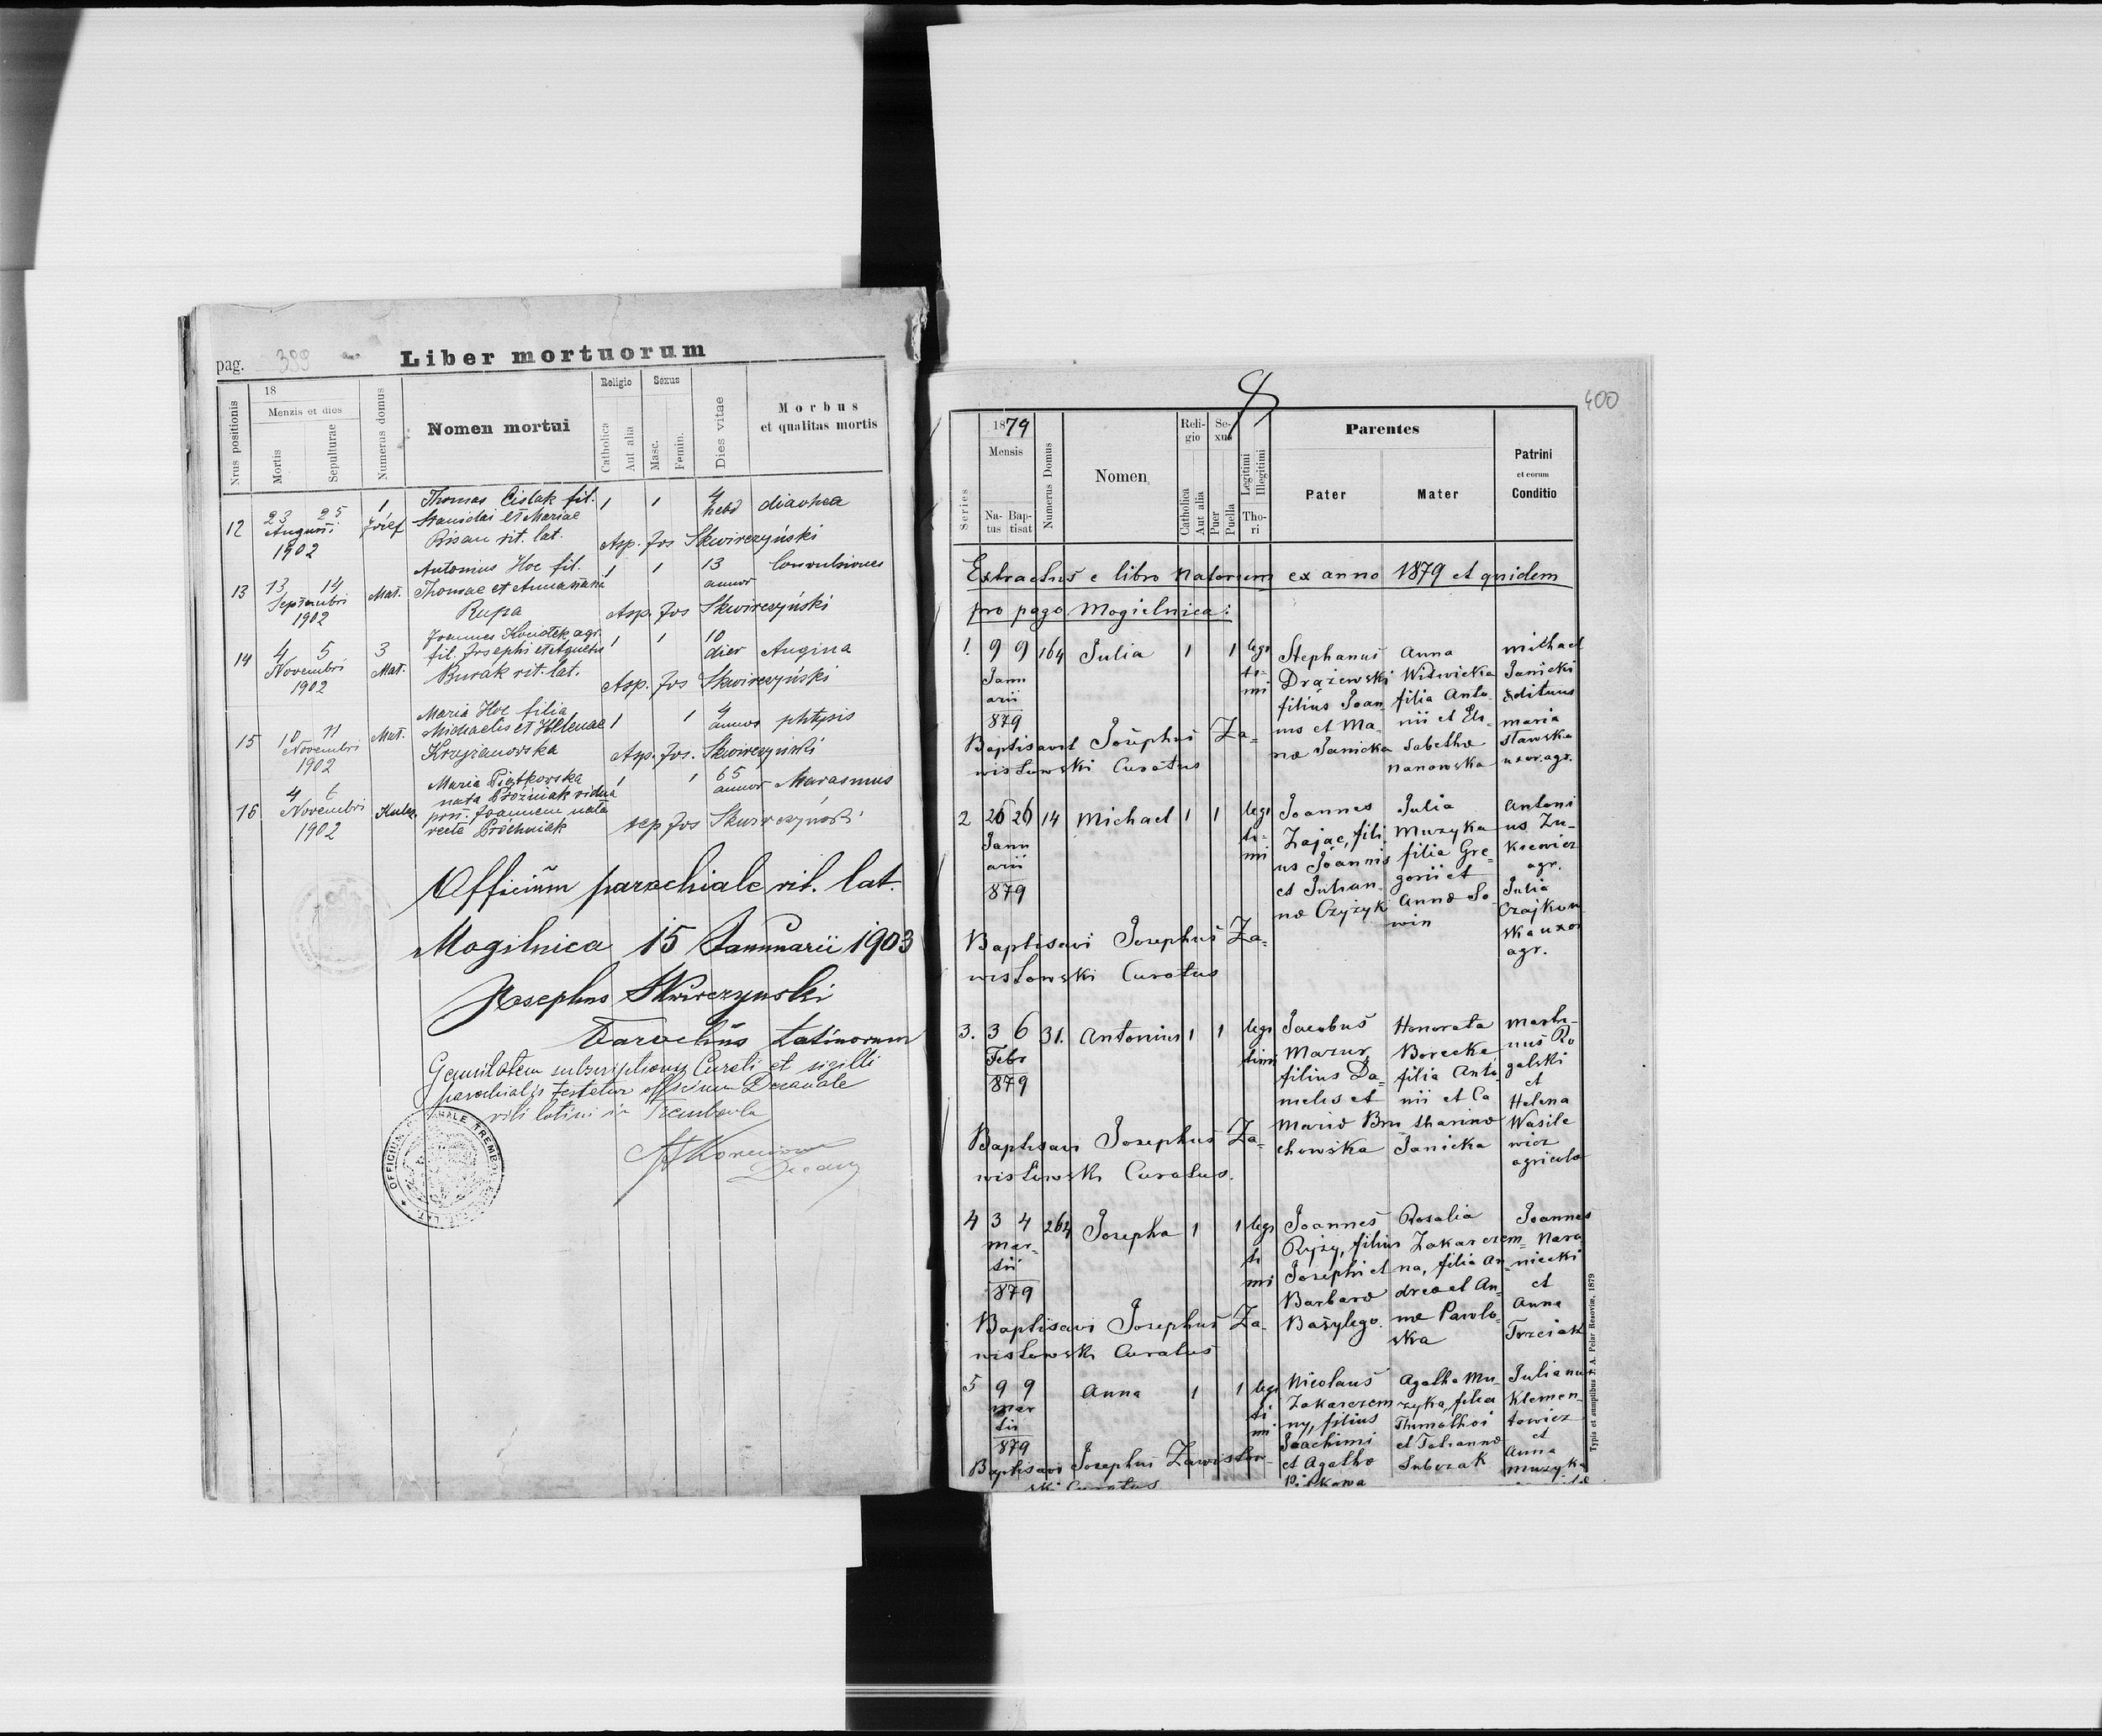 pag. 399
Liber mortuorum
Nrus positionis
18
Menzis et dies
Mortis
Sepulturae
Numerus domus
Nomen mortui
Religio
Catholica
Aut alia
Sexus
Masc.
Femin.
Dies vitae
Morbus
et qualitas mortis
12
23 25
Augusti
1902
1
Józef
Thomas Cislak fil.
Stanislai et Mariae
Risan rit. lat.
1
1
4
hebd
diarhea
Asp. Jos Skwirczyński
13
13 14
Septembri
1902
Mat.
Antonius Hoc fil.
Thomae et Anna nata
Rupa
1
1
13
annor
Convulsiones
Asp. Jos Skwirczyński
14
4 5
Novembri
1902
3
Mat.
Joannes agr.
fil. Josephi et Agnetis
Burak rit. lat.
1
1
10
dier
Angina
Asp. Jos Skwirczyński
15
10 11
Novembri
1902
Mat.
Maria Hoc filia
Michaelis et Helenae
Krzyżanowska
1
1
4
annos
phtysis
Asp. Jos. Skwirczyński
16
4
Novembri
1902
Maria Piątkowska
nata Próżniak vidua
post. Joannem nata
recte Próchniak
1
1
65
annor
Marasmus
Jos Skwirczyński
Officium parochiale rit. lat.
Mogilnica 15 Januarii 1903
Josephus Skwirczynski
Parochus Latinorum
subscriptionis Curati et sigilli
parochialis testatur officium Decanale
riti latini in Trembowla
Decan
400
Series
1879
Mensis
Na-
tus
Bap-
tisat
Numerus Domus
Nomen
Reli-
gio
Catholica
Aut alia
Se-
xus
Puer
Puella
Legitimi
Illegitimi
Tho-
ri
Parentes
Pater
Mater
Patrini
et eorum
Conditio
Extractus e libro Natorum ex anno 1879 et quidem
pro pago Mogielnica:
1. 9 9 164 Julia 1 1 legi
ti-
mi
Janu
arii
879
Stephanus
Drążewski
filius Joan-
nis et Ma-
næ Janicka
Anna
Witwicka
filia Anto-
nii et Eli-
sabethæ
Nanowska
Michael
Janicki
Æditus
Maria
Stawska
uxor. agr.
Baptisavit Josephus Za-
wisłowski Curatus
2 26 26 14 Michael 1 1 legi
ti-
mi
Janu
arii
879
Joannes
Zając, fili
us Joannis
et Julian-
næ Czyżyk
Julia
Muzyka
filia Gre-
gorii et
Annæ So-
win
Antoni
us Zu-
kiewicz
agr.
Julia
Czajkow
ska uxor
agr.
Baptisavi Josephus Za-
wisłowski Curatus
3. 3 6 31. Antonius 1 1 legi
timi
Febr
879
Jacobus
Mazur,
filius Da-
nielis et
Mariæ Bro
chowska
Honorata
Borecka
filia Anto
nii et Ca
tharinæ
Janicka
Marti-
nus Ro
galski
et
Helena
Wasile
wicz
agricolæ
Baptisavi Josephus Za-
wisłowski Curatus.
4 3 4 264 Josepha 1 1 legi
ti
mi
Mar-
tii
879
Joannes
Ryży, filius
Josephi et
Barbaræ
Bazylego.
Rosalia
Zakarczem-
na, filia An-
dreæ et An-
næ Pawlo-
ska
Joannes
Nara
niecki
et
Anna
Trzeciak
Baptisavi Josephus Za-
wisłowski Curatus
5 9 9 Anna 1 1 legi
ti
mi
Mar
tii
879
Nicolaus
Zakarczem
ny, filius
Joachimi
et Agathæ
Agatha Mu-
zyka, filia
Thimothei
et Tatiannæ
Julianus
Klemen-
towicz
et
Anna
Muzyka
Baptisavi Josephus Zawisłow-
ski Curatus
Typis et sumptibus J. A. Pelar Resoviæ, 1879